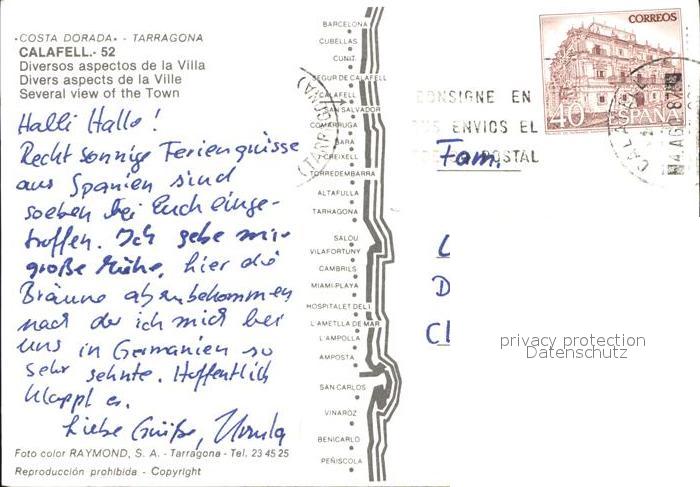 «COSTA DORADA» - TARRAGONA
CALAFELL.- 52
Diversos aspectos de la Villa
Divers aspects de la Ville
Several view of the Town
Halli Hallo!
Recht sonnige Feriengrüsse
aus Spanien sind
soeben bei Euch einge-
troffen. Ich gebe mir
große Mühe, hier die
Bräune abzubekommen
nach der ich mich bei
uns in Germanien so
sehr sehnte. Hoffentlich
klappt es.
Liebe Grüße, Ursula
Foto color RAYMOND, S. A. - Tarragona - Tel. 23 45 25
Reproducción prohibida - Copyright
BARCELONA
CUBELLAS
CUNIT
SEGUR DE CALAFELL
CALAFELL
SAN SALVADOR
COMARRUGA
BARA
CREIXELL
TORREDEMBARRA
ALTAFULLA
TARRAGONA
SALOU
VILAFORTUNY
CAMBRILS
MIAMI-PLAYA
HOSPITALET DEL I.
L'AMETLLA DE MAR
L'AMPOLLA
AMPOSTA
SAN CARLOS
VINAROZ
BENICARLO
PEÑISCOLA
(TARRAGONA)
CONSIGNE EN
SUS ENVIOS EL
POSTAL
CORREOS
40
ESPAÑA
CALAFELL
4 AG. 87
Fam.
D
privacy protection
Datenschutz